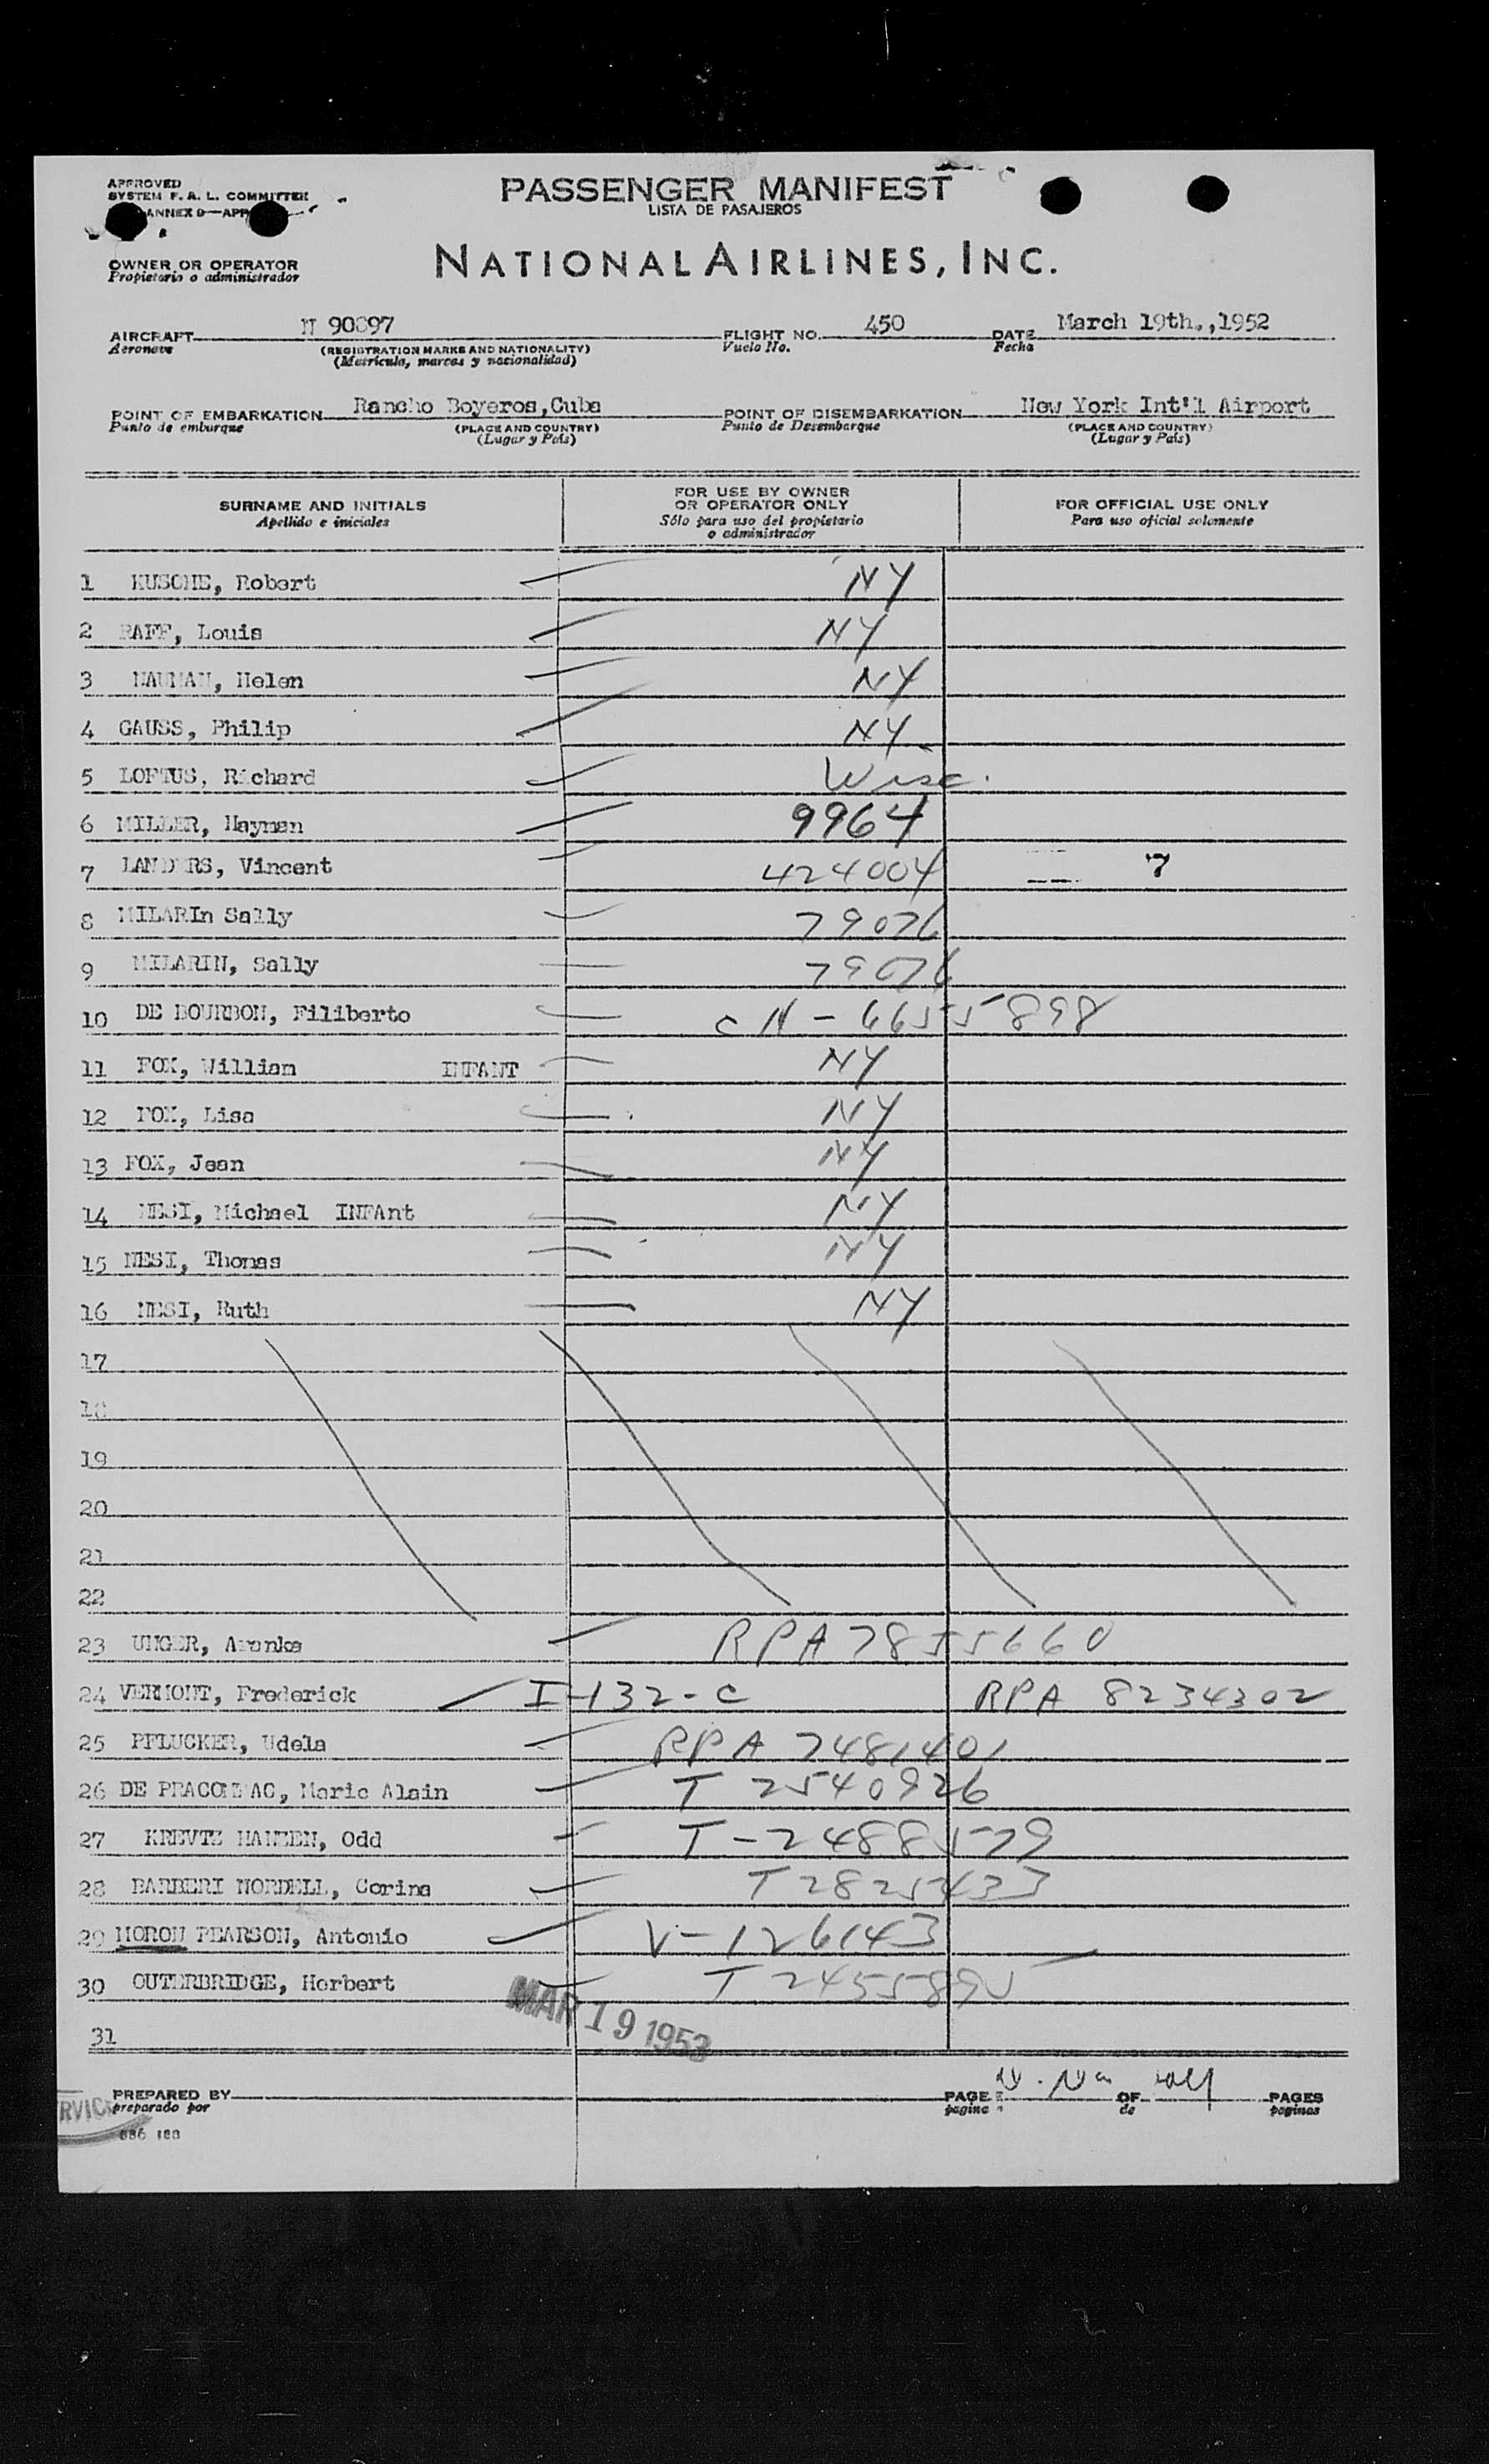 APPROVED
SYSTEM F. A. L. COMMITTEE
ANNEX 9—APP
PASSENGER MANIFEST
LISTA DE PASAJEROS
OWNER OR OPERATOR
Propietario o administrador
NATIONAL AIRLINES, INC.
AIRCRAFT N 90897 FLIGHT NO. 450 DATE March 19th.,1952
Aeronave (REGISTRATION MARKS AND NATIONALITY) Vuelo No. Fecha
(Matrícula, marcas y nacionalidad)
POINT OF EMBARKATION Rancho Boyeros,Cuba POINT OF DISEMBARKATION New York Int'l Airport
Punto de emburque (PLACE AND COUNTRY) Punto de Desembarque (PLACE AND COUNTRY)
(Lugar y País) (Lugar y País)
SURNAME AND INITIALS FOR USE BY OWNER OR OPERATOR ONLY FOR OFFICIAL USE ONLY
Apellido e iniciales Sólo para uso del propietario o administrador Para uso oficial solamente
1 KUSCHE, Robert NY
2 RAFF, Louis NY
3 NAUMAN, Helen NY
4 GAUSS, Philip NY
5 LOFTUS, Richard Wisc.
6 MILLER, Hayman 9964
7 LANDERS, Vincent 424004 7
8 MILARIn Sally 79076
9 MILARIN, Sally 79076
10 DE BOURBON, Filiberto CN-6655898
11 FOX, William INFANT NY
12 FOX, Lisa NY
13 FOX, Jean NY
14 NESI, Michael INFAnt NY
15 NESI, Thomas NY
16 NESI, Ruth NY
17
18
19
20
21
22
23 UNGER, Aranka RPA 7855660
24 VERMONT, Frederick I-132-C RPA 8234302
25 PFLUCKER, Udela RPA 7481401
26 DE Marie Alain T 2540926
27 KREVTZ HANZEN, Odd T-2488579
28 BARBERI NORDELL, Corina T2825433
29 MORON PEARSON, Antonio V-126143
30 OUTERBRIDGE, Herbert T 2455890
31
MAR 19 1953
PREPARED BY PAGE OF PAGES
preparado por pagina de paginas
RVICE